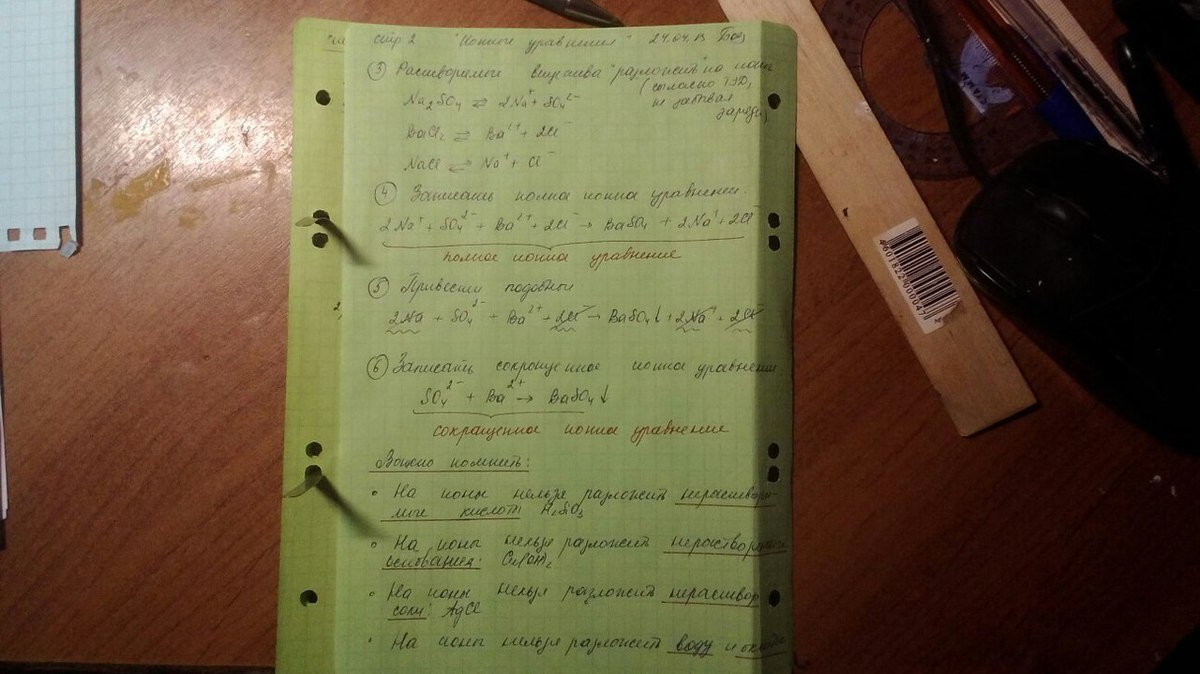 стр. 2 "Ионные уравнения" 24.04.13
③ Растворимые вещества "разложить" на ионы
(согласно ТЭД,
не забывая
заряды)
Na₂SO₄ ⇄ 2Na⁺ + SO₄²⁻
BaCl₂ ⇄ Ba²⁺ + 2Cl⁻
NaCl ⇄ Na⁺ + Cl⁻
④ Записать полное ионное уравнение.
2Na⁺ + SO₄²⁻ + Ba²⁺ + 2Cl⁻ → BaSO₄ + 2Na⁺ + 2Cl⁻
полное ионное уравнение
⑤ Привести подобные
2Na + SO₄²⁻ + Ba²⁺ + 2Cl⁻ → BaSO₄↓ + 2Na⁺ + 2Cl⁻
⑥ Записать сокращенное ионное уравнение
SO₄²⁻ + Ba²⁺ → BaSO₄↓
сокращенное ионное уравнение
Важно помнить:
• На ионы нельзя разложить нераствори-
мые кислоты H₂SiO₃
• На ионы нельзя разложить нерастворимые
основания: Cu(OH)₂
• На ионы нельзя разложить нераствор
соли: AgCl
• На ионы нельзя разложить воду и
4601822000047